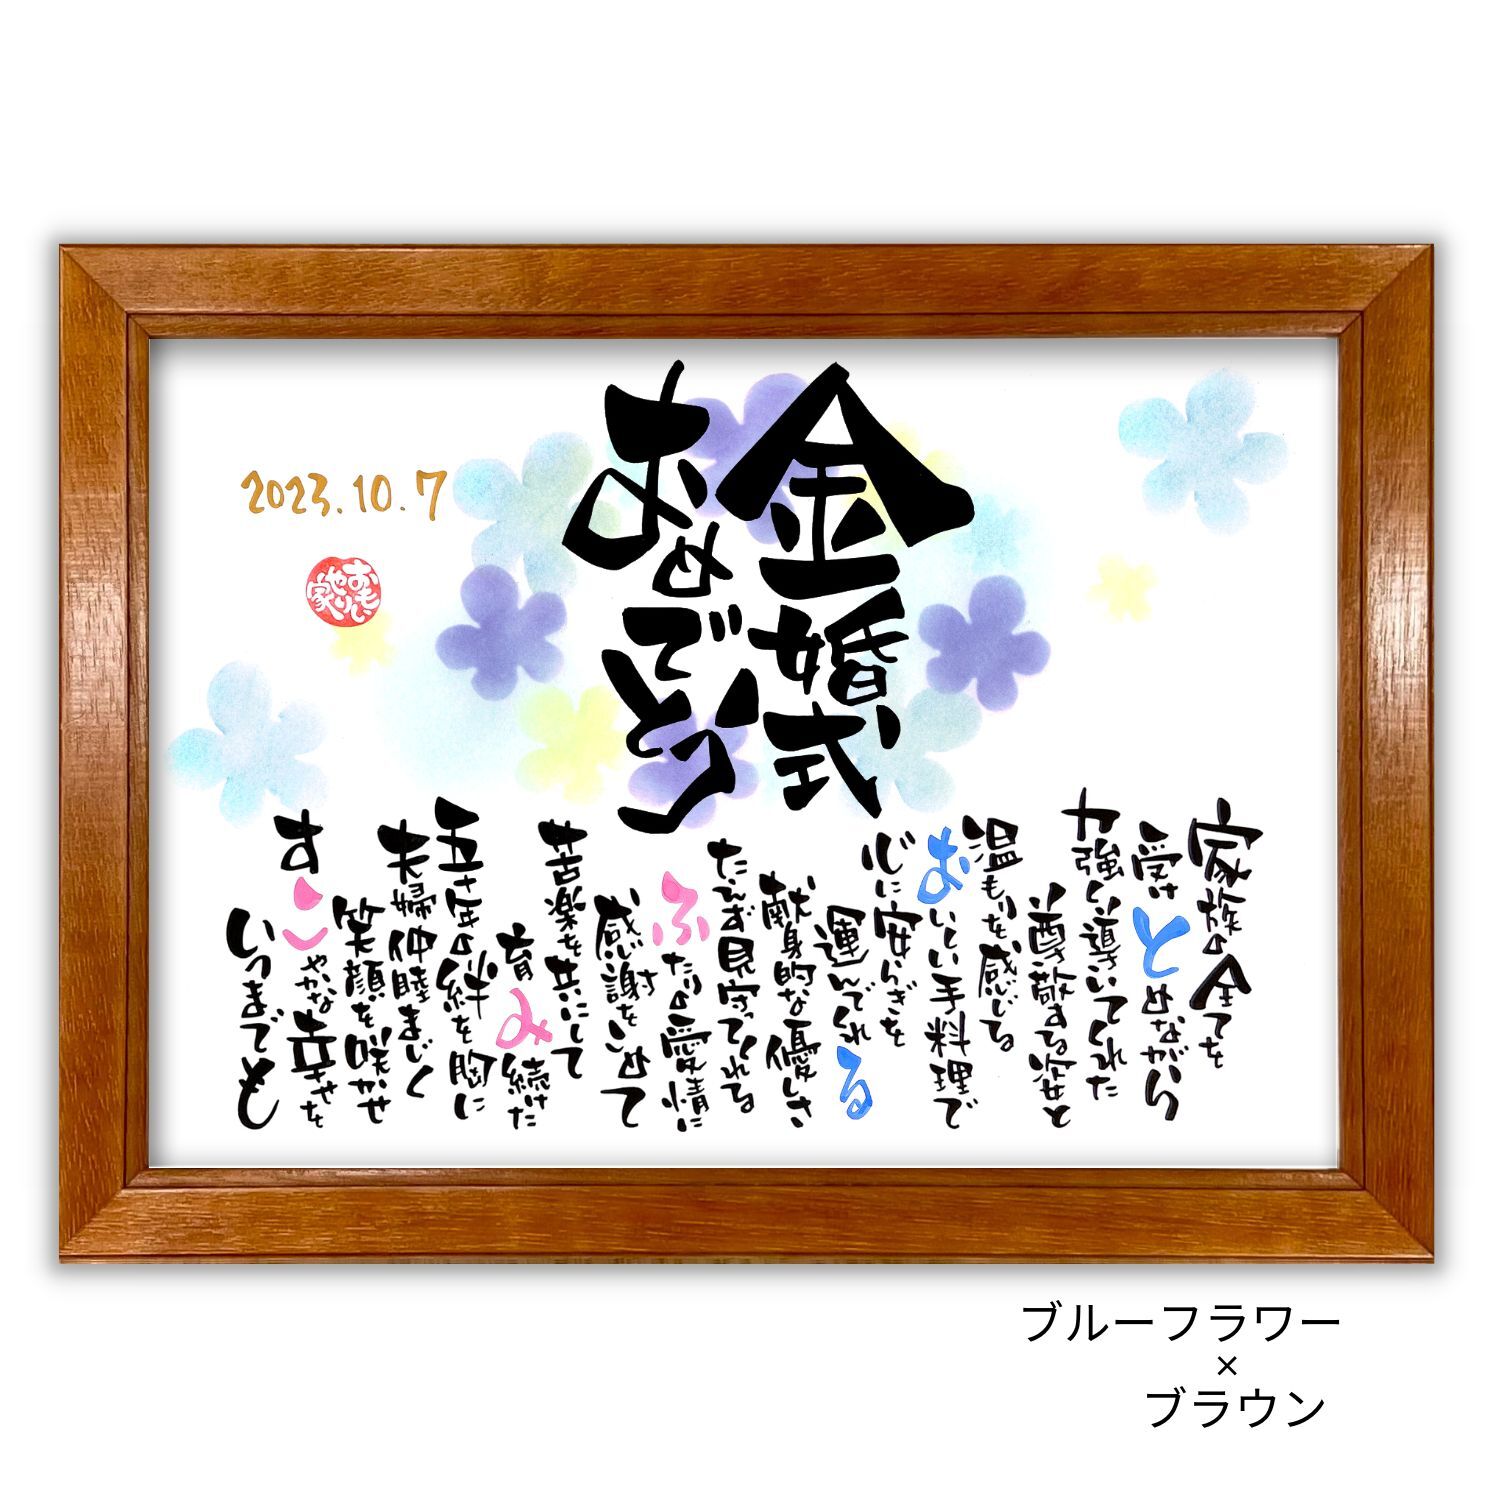 金婚式
おめでとう
2023.10.7
おもい
やりぃ
家
家族の全てを
受けとめながら
力強く導いてくれた
尊敬する姿と
温もりを感じる
おいしい手料理で
心に安らぎを
運んでくれる
献身的な優しさ
たえず見守ってくれる
ふたりの愛情に
感謝をこめて
苦楽を共にして
育み続けた
五十年の絆を胸に
夫婦仲睦まじく
笑顔を咲かせ
すこやかな幸せを
いつまでも
ブルーフラワー
×
ブラウン